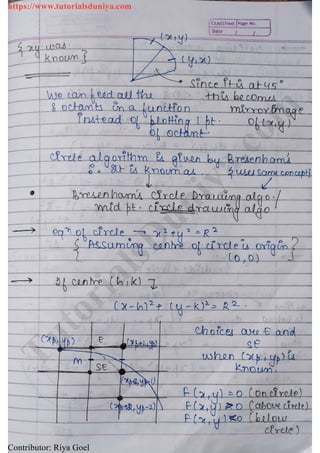 https://www.tutorialsduniya.com
CLASSTIME Page No.
Date / /
(x,y)
{ xy was
known }
(y,x)
→ Since it is at 45°
We can feed all the this becomes
8 octants in a function mirror image
instead of plotting 1 pt. of (x,y)
of octant.
Circle algorithm is given by Bresenham's
∴ It is known as. {uses same concept}
• Bresenham's Circle Drawing algo./
mid pt. circle drawing algo
→ eqn of circle → x²+y² = R²
{ Assuming centre of circle is origin }
(0,0)
→ If centre (h,k) ⇓
(x-h)² + (y-k)² = R².
(xp,yp) E (xp+1,yp)
choices are E and
SE
M SE
when (xp,yp) is
known.
(xp+2,yp-1)
F(x,y) = 0 (on circle)
F(x,y) > 0 (above circle)
(xp+2,yp-2)
F(x,y) < 0 (below
circle)
Tutorialsduniya.com
Contributor: Riya Goel